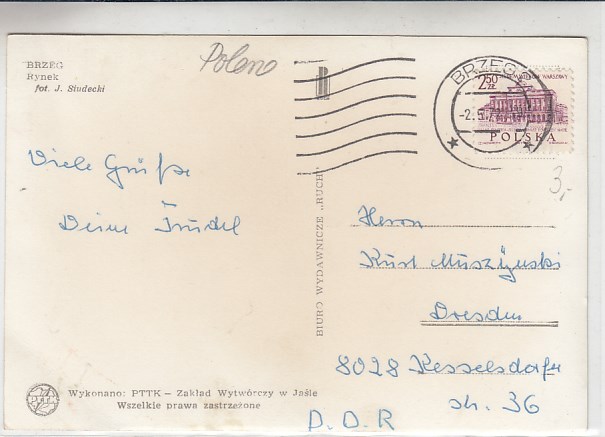 BRZEG
Rynek
fot. J. Siudecki
Polono
Viele Grüße
Deine Trudel
Wykonano: PTTK — Zakład Wytwórczy w Jaśle
Wszelkie prawa zastrzeżone
BIURO WYDAWNICZE „RUCH"
BRZEG
-2.5.7
2.50 ZŁ
POLSKA
3,-
Herrn
Kurt Muszyński
Dresden
8028 Kesselsdorfer
str. 36
D.D.R